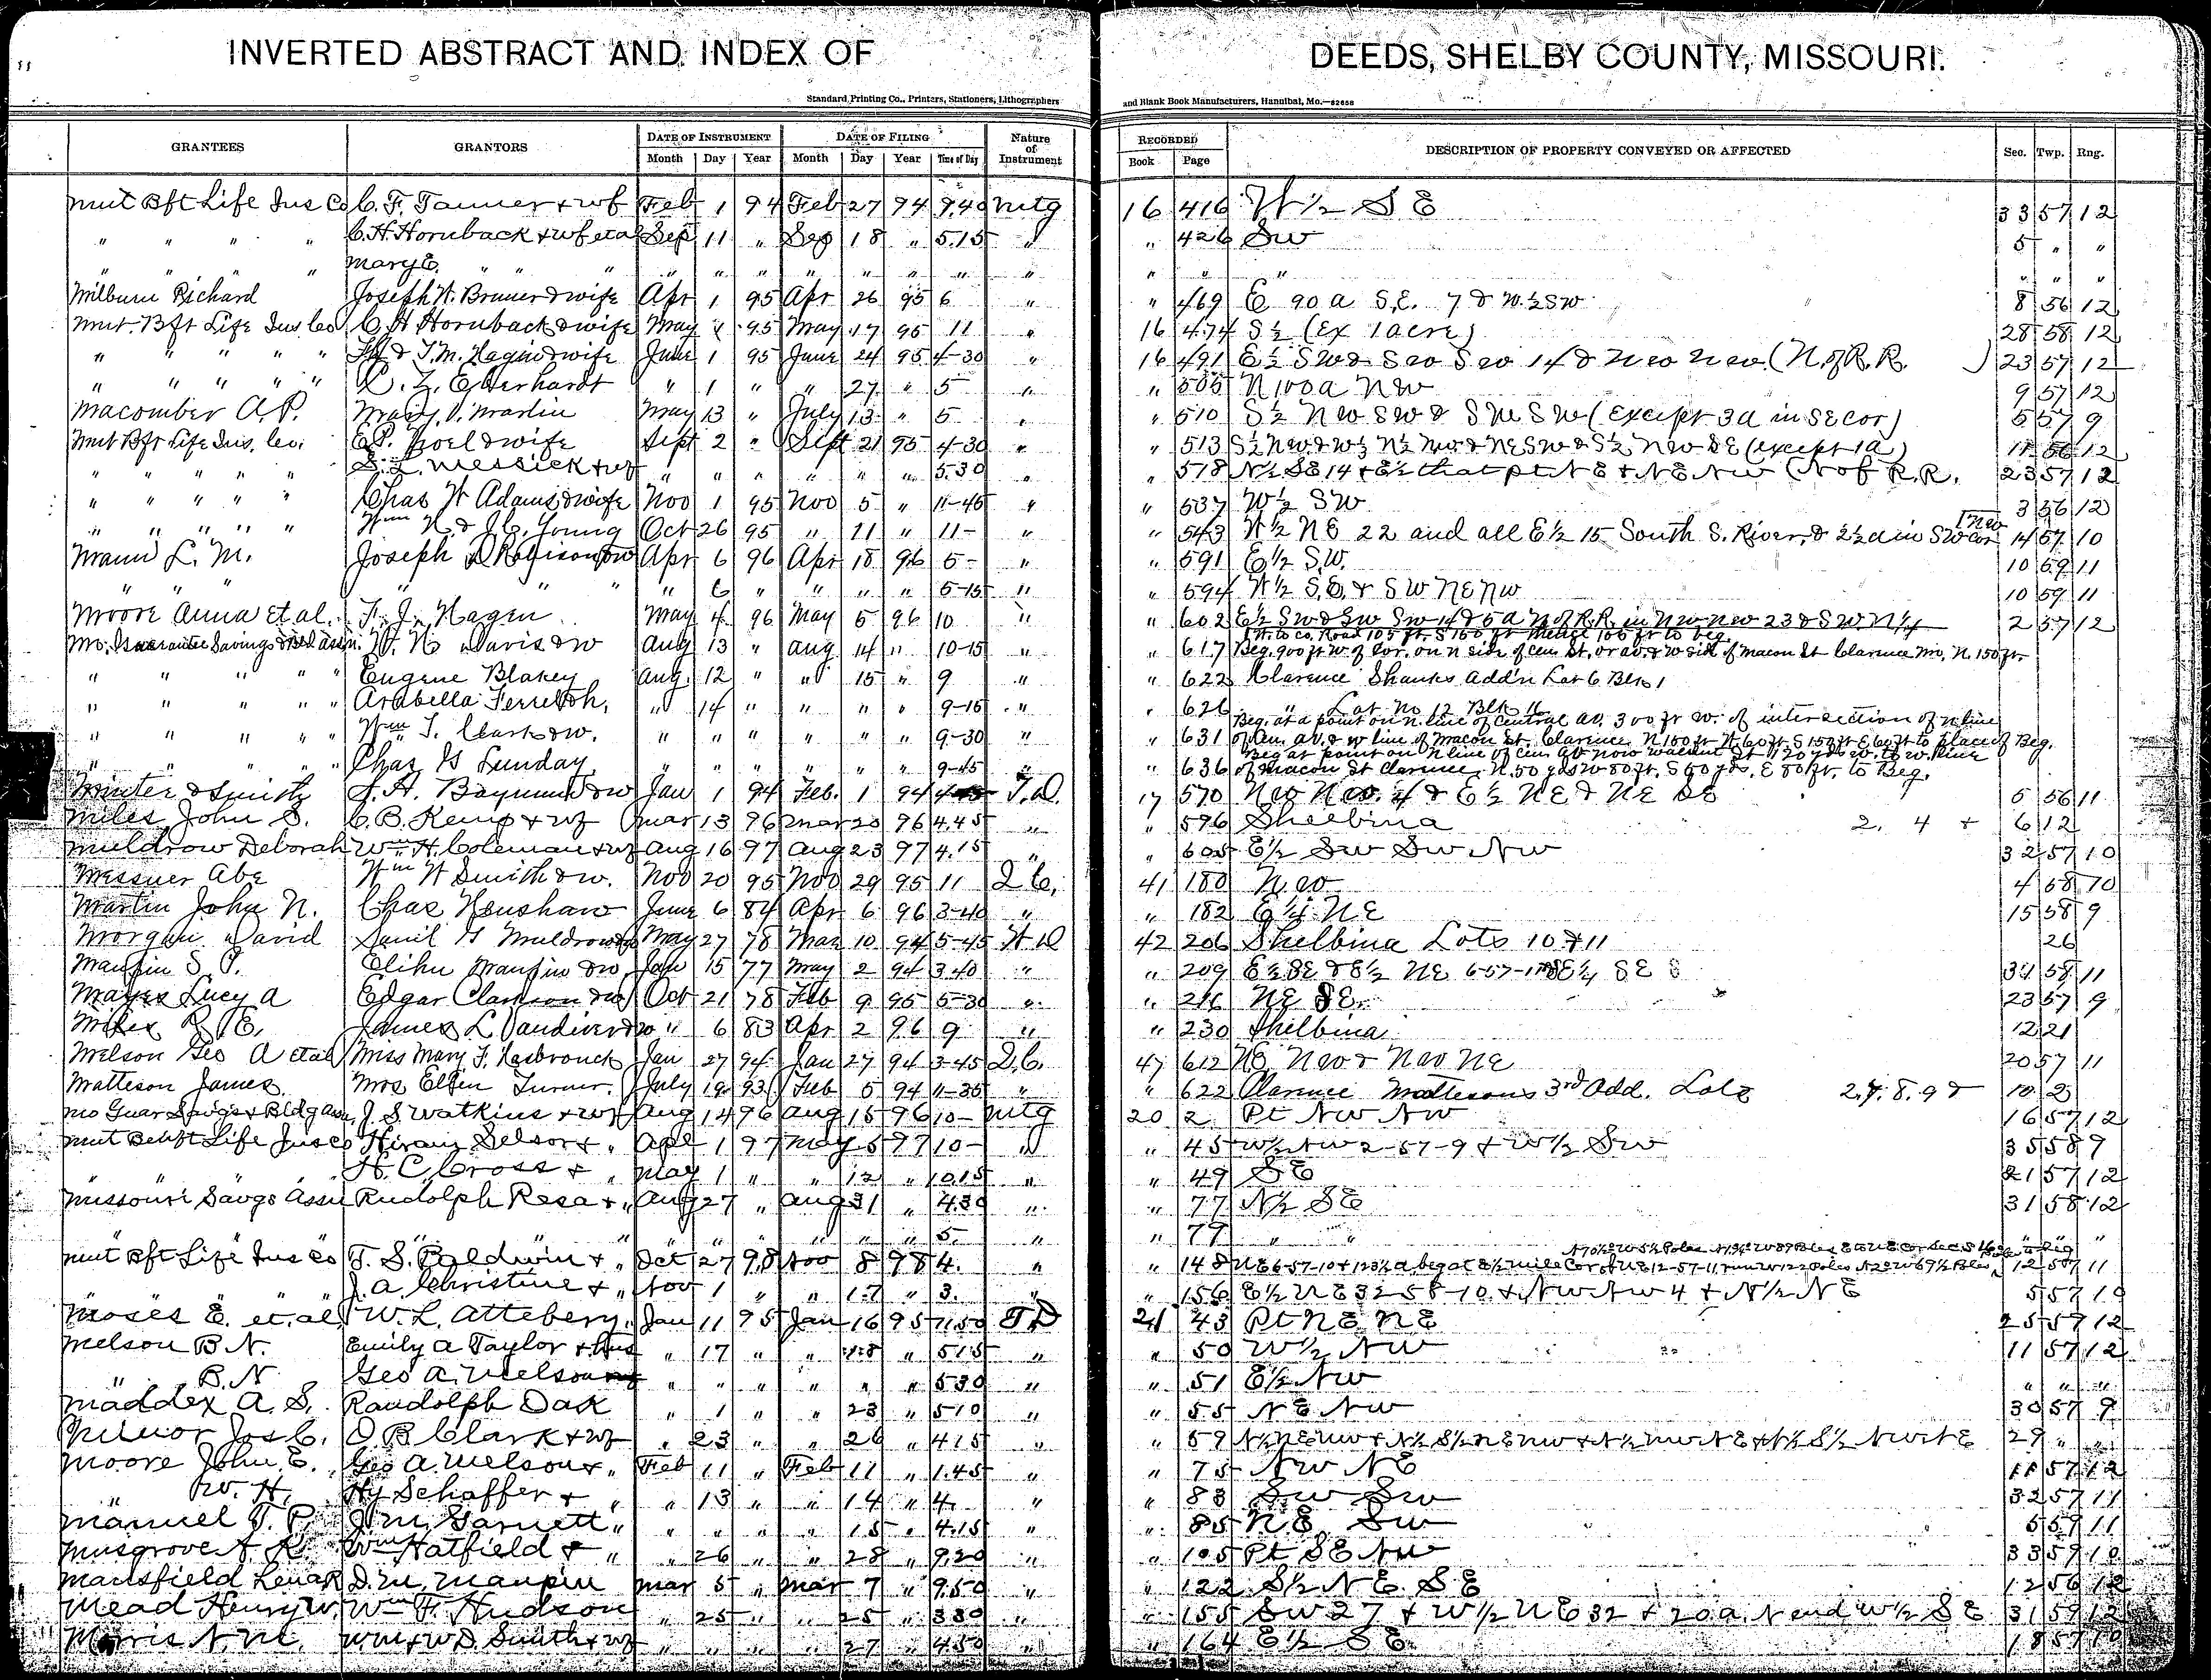 INVERTED ABSTRACT AND INDEX OF DEEDS, SHELBY COUNTY, MISSOURI.
Standard Printing Co., Printers, Stationers, Lithographers and Blank Book Manufacturers, Hannibal, Mo.—82858
GRANTEES GRANTORS DATE OF INSTRUMENT DATE OF FILING Nature of Instrument RECORDED DESCRIPTION OF PROPERTY CONVEYED OR AFFECTED Sec. Twp. Rng.
Month Day Year Month Day Year Time of Day Book Page
Mut Bft Life Ins Co C. F. Tanner + wf Feb 1 94 Feb 27 94 9.40 Mtg 16 416 W ½ S E 33 57 12
" " " " C. H. Hornback + wf etal Sep 11 " Sep 18 " 5.15 " " 426 SW 5 " "
" Mary E. " " " " " " " " " " " " " " " " " "
Milburn Richard Joseph W. Bruner & wife Apr 1 95 Apr 26 95 6 " " 469 E 90 a S.E. 7 & W. ½ SW 8 56 12
Mut. Bft Life Ins Co C H Hornback & wife May 1 95 May 17 95 11 " 16 474 S ½ (Ex 1 acre) 28 58 12
" " " " " & T. M. Hagin & wife June 1 95 June 24 95 4-30 " 16 491 E ½ SW & SW SW 14 & NW NW (N. of R.R. ) 23 57 12
" " " " " C. Z. Eberhardt " 1 " " 27 " 5 " " 505 N 100 a NW 9 57 12
Macomber A. P. Mary V. Martin May 13 " July 13 " 5 " " 510 S ½ NW SW & SW SW (except 3a in SE cor) 5 57 9
Mut Bft Life Ins. Co. & wife Sept 2 " Sept 21 95 4-30 " " 513 S ½ NW & W ½ N ½ NW & NE SW & S ½ NW SE (except 1a) 11 56 12
" " " " " S. L. Messick + wf " " " " " " 5.30 " " 518 N ½ SE 14 + E ½ that pt NE + NE NW (N of R.R. 23 57 12
" " " " " Chas W Adams & wife Nov 1 95 Nov 5 " 11-45 " " 537 W ½ SW 3 56 12
" " " " " Wm N. & J. C. Young Oct 26 95 " 11 " 11- " " 543 W ½ NE 22 and all E ½ 15 South S. River, & 2 ½ a in SW cor NW 14 57 10
Mann L. M. Joseph D Robinson & w Apr 6 96 Apr 18 96 5- " " 591 E ½ S.W. 10 59 11
" " " " " " " 6 " " " " 5-15 " " 594 W ½ S.E. & SW NE NW 10 59 11
Moore Anna et al. F. J. Hagen May 4 96 May 5 96 10 " " 602 E ½ SW & SW SW 14 & 5 a N of R.R. in NW NW 23 & S W. N ¼ 2 57 12
Mo. Guarantee Savings & Bld assn. W. N. Davis & w Aug 13 " Aug 14 " 10-15 " " 617 Beg. 900 ft W. of cor. on N side of Cen. St. or av. & W side of Macon St Clarence Mo. N. 150 ft.
W. to co. Road 105 ft. S 150 ft thence 105 ft to beg.
" " " " " Eugene Blakey Aug. 12 " " 15 " 9 " " 622 Clarence Shanks Add'n Lot 6 Blk 1
" " " " " Arabella Ferrel " 14 " " " " 9-15 " " 626 " Lot No 12 Blk 16
" " " " " Wm T. Clark & w. " " " " " " 9-30 " " 631 Beg. at a point on N. line of Central av. 300 ft W. of intersection of N line
of Cen. av. & W line of Macon St. Clarence N 150 ft W 60 ft S 150 ft E 60 ft to place of Beg.
" " " " " Chas G Lunday " " " " " " 9-45 " " 636 Beg at point on N line of Cen. av now Walnut St 120 yds W. to W. line
of Macon St Clarence, N. 50 yds W 80 ft. S 50 yds. E 80 ft. to Beg.
Minter & Smith J. H. Baymund & w Jan 1 94 Feb. 1 94 T.D. 17 570 NW NW. 4 & E ½ NE & NE SE 5 56 11
Miles John S. C. B. Kemp + wf Mar 13 96 Mar 20 96 4.45 " " 596 Shelbina 2. 4 + 6 12
Muldrow Deborah Wm. H. Coleman + wf Aug 16 97 Aug 23 97 4.15 " " 605 E ½ SW SW NW 32 57 10
Messner Abe Wm W Smith & w. Nov 20 95 Nov 29 95 11 Q C. 41 180 NW 4 58 10
Martin John N. Chas Henshaw June 6 84 Apr 6 96 3-40 " " 182 E ½ NE 15 58 9
Morgan David Saml G Muldrow May 27 78 Mar 10 94 5-45 W D 42 206 Shelbina Lots 10 & 11 26
Maupin S. P. Elihu Maupin & w Jan 15 77 May 2 94 3.40 " " 209 E ½ SE & E ½ NE 6-57-11 & SE ¼ SE 31 58 11
Mayes Lucy A Edgar Clarkson & w Oct 21 78 Feb 9 95 5-30 " " 216 NE SE. 23 57 9
Miles R E. James L. Vandiver & w " 6 83 Apr 2 96 9 " " 230 Shelbina 12 21
Melson Geo A etal Miss Mary F. Hasbrouck Jan 27 94 Jan 27 94 3-45 D.C. 47 612 NE NW & NW NE 20 57 11
Matteson James Mrs Ellen Turner. July 19 93 Feb 5 94 11-35 " " 622 Clarence Mattesons 3rd Add. Lots 2.7. 8. 9 & 10 2
Mo Guar Savgs + Bldg Assn J. S Watkins + wf Aug 14 96 Aug 15 96 10- Mtg 20 2 Pt NW NW 16 57 12
Mut Benft Life Ins Co Hiram Selsor + " Apl 1 97 May 5 97 10- " " 45 W ½ NW 2-57-9 + W ½ SW 35 58 9
H. C Cross + " May 1 " " 12 " 10.15 " " 49 SE 21 57 12
Missouri Savgs Assn Rudolph Resa + " Aug 27 " Aug 31 " 4.30 " " 77 N ½ SE 31 58 12
" " " " " " " " " 5. " " 79 " " " " "
Mut Bft Life Ins Co T. S. Baldwin + " Oct 27 98 Nov 8 98 4. " " 148 NE 6-57-10 + 123 ½ a beg at E ½ mile Cor of NE 12-57-11, run W 122 Poles 12 57 11
" " " " J. A. Christine + " Nov 1 " " 17 " 3. " " 156 E ½ NE 32 58-10. + NW NW 4 + N ½ NE 5 57 10
Moses E. et. al. W. L. Attebery. Jan 11 95 Jan 16 95 11.50 T D 21 43 Pt NE NE 25 57 12
Melson B. N. Emily A Taylor + hus " 17 " " 18 " 5.15 " " 50 W ½ NW 11 57 12
" B. N Geo A. Melson " " " " " " 5 30 " " 51 E ½ NW " " "
Maddex A. S. Randolph Dak " 1 " " 23 " 5 10 " " 55 NE NW 30 57 9
Minor Jos C. O B Clark + wf " 23 " " 26 " 4.15 " " 59 N ½ NE NW + N ½ S ½ NE NW + N ½ NW NE + N ½ S ½ NW NE 29 " "
Moore John E. Geo A. Melson + " Feb 11 " Feb 11 " 1.45 " " 75 NW NE 11 57 12
" W. H. Hy Schaffer + " " 13 " " 14 " 4. " " 83 SW SW 32 57 11
Manuel T. P. J. M. Garnett " " " " " 15 " 4.15 " " 85 NE SW 5 59 11
Musgrove Wm Hatfield + " " 26 " " 28 " 9.20 " " 105 Pt SE NW 33 59 10
Mansfield Lena R D. M. Maupin Mar 5 " Mar 7 " 9.50 " " 122 S ½ NE. SE 12 56 12
Mead Henry W. Wm F. Hudson " 25 " " 25 " 3 30 " " 155 SW 27 + W ½ NE 32 + 20 a. N end W ½ SE 31 59 12
Morris N. M. Wm + W D. Smith + wf " " " " 27 " 4.50 " " 164 E ½ SE. 18 57 10